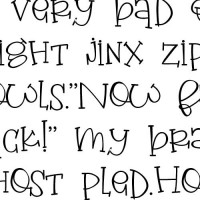 very bad
ight jinx zip
owls."Now
ck!" my bra
host pled.Ho